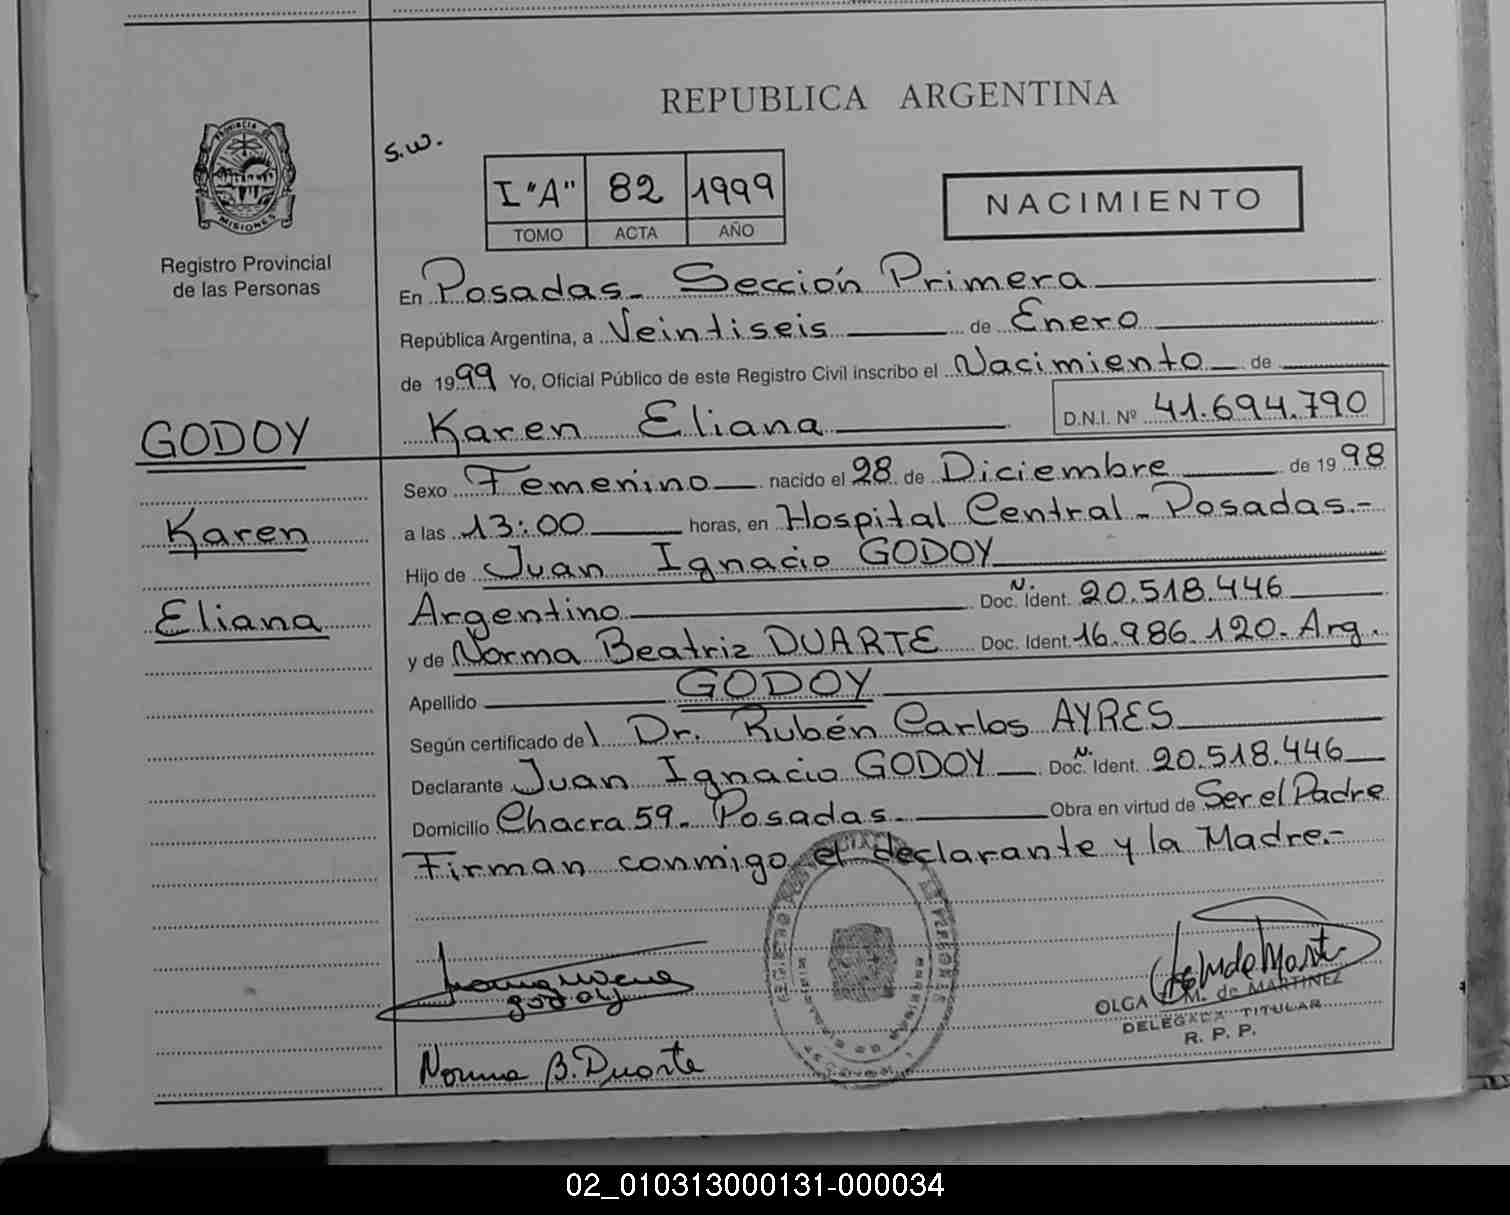 REPUBLICA ARGENTINA
PROVINCIA DE
MISIONES
Registro Provincial
de las Personas
s.w.
I "A" 82 1999
TOMO ACTA AÑO
NACIMIENTO
En Posadas- Sección Primera
República Argentina, a Veintiseis de Enero
de 1999 Yo, Oficial Público de este Registro Civil inscribo el Nacimiento de
Karen Eliana D.N.I. Nº 41.694.790
GODOY
Karen
Eliana
Sexo Femenino nacido el 28 de Diciembre de 1998
a las 13:00 horas, en Hospital Central - Posadas.-
Hijo de Juan Ignacio GODOY
Argentino Doc. N. Ident. 20.518.446
y de Norma Beatriz DUARTE Doc. Ident. 16.986.120- Arg.
Apellido GODOY
Según certificado del Dr. Rubén Carlos AYRES
Declarante Juan Ignacio GODOY Doc. N. Ident. 20.518.446
Domicilio Chacra 59- Posadas- Obra en virtud de Ser el Padre
Firman conmigo el declarante y la Madre.-
godoy
Norma B. Duarte
OLGA M. de MARTINEZ
DELEGADA TITULAR
R. P. P.
02_010313000131-000034